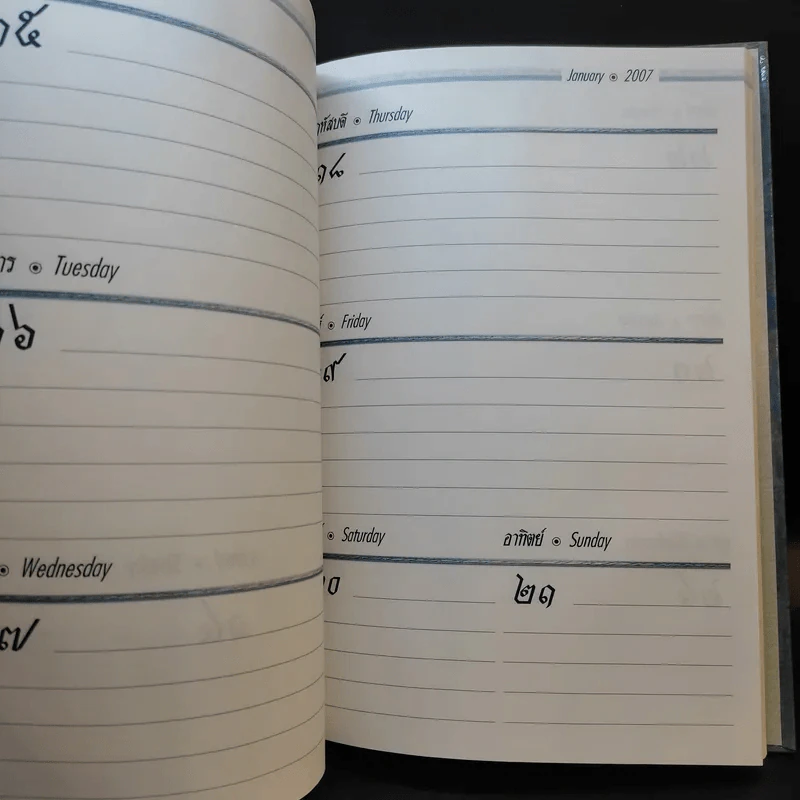 ๕
าร ◉ Tuesday
๖
◉ Wednesday
๗
January ◉ 2007
หัสบดี ◉ Thursday
๑๘
์ ◉ Friday
๙
์ ◉ Saturday
๐
อาทิตย์ ◉ Sunday
๒๑